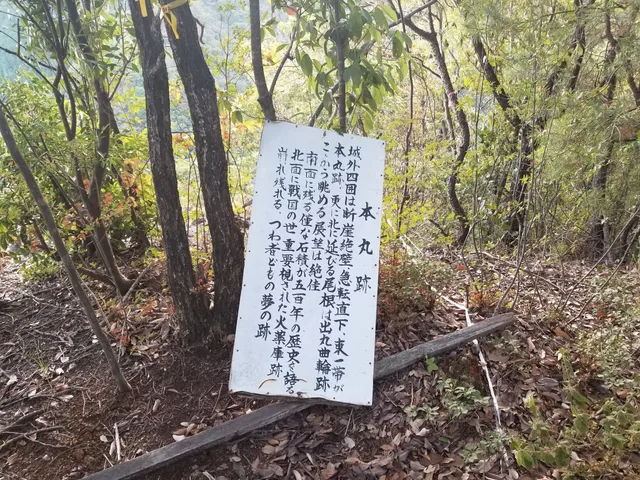 本丸跡
城外四囲は断崖絶壁、急転直下、東一帯が
本丸跡、更に北に延びる尾根は出丸曲輪跡
ここから眺める展望は絶佳
南面に残る僅な石積が五百年の歴史を語る
北面に戦国の世重要視された火薬庫跡
崩れ残れる つわ者どもの夢の跡